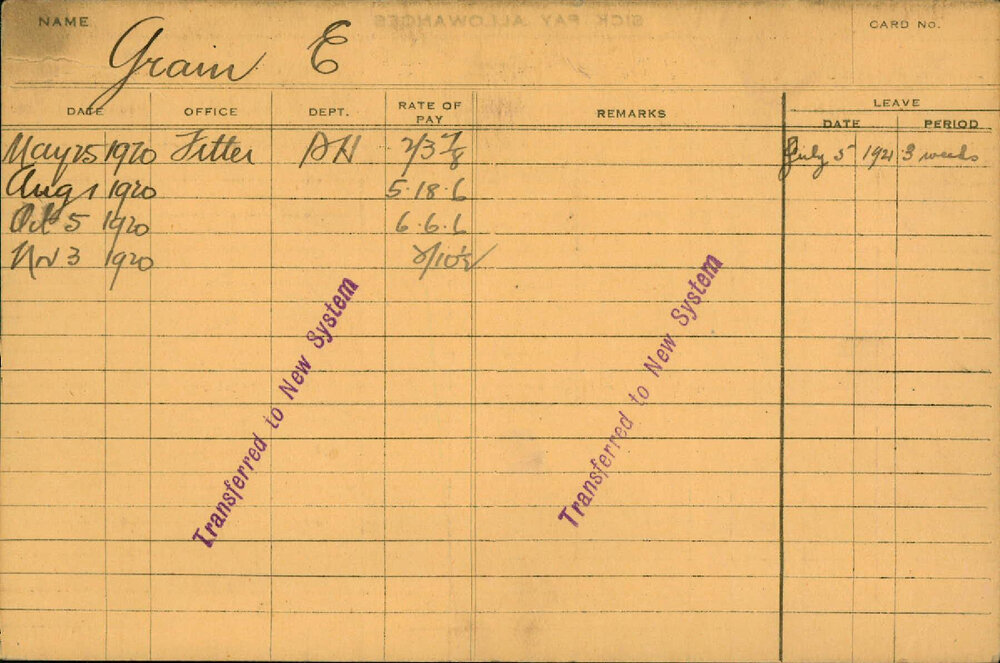 NAME
CARD No.
Grain E
DATE OFFICE DEPT. RATE OF PAY REMARKS LEAVE
DATE PERIOD
May 25 1920 Fitter AH 2/3 7/8 July 5 1921 3 weeks
Aug 1 1920 5.18.6
Oct 5 1920 6.6.6
Nov 3 1920 2/10½
Transferred to New System
Transferred to New System